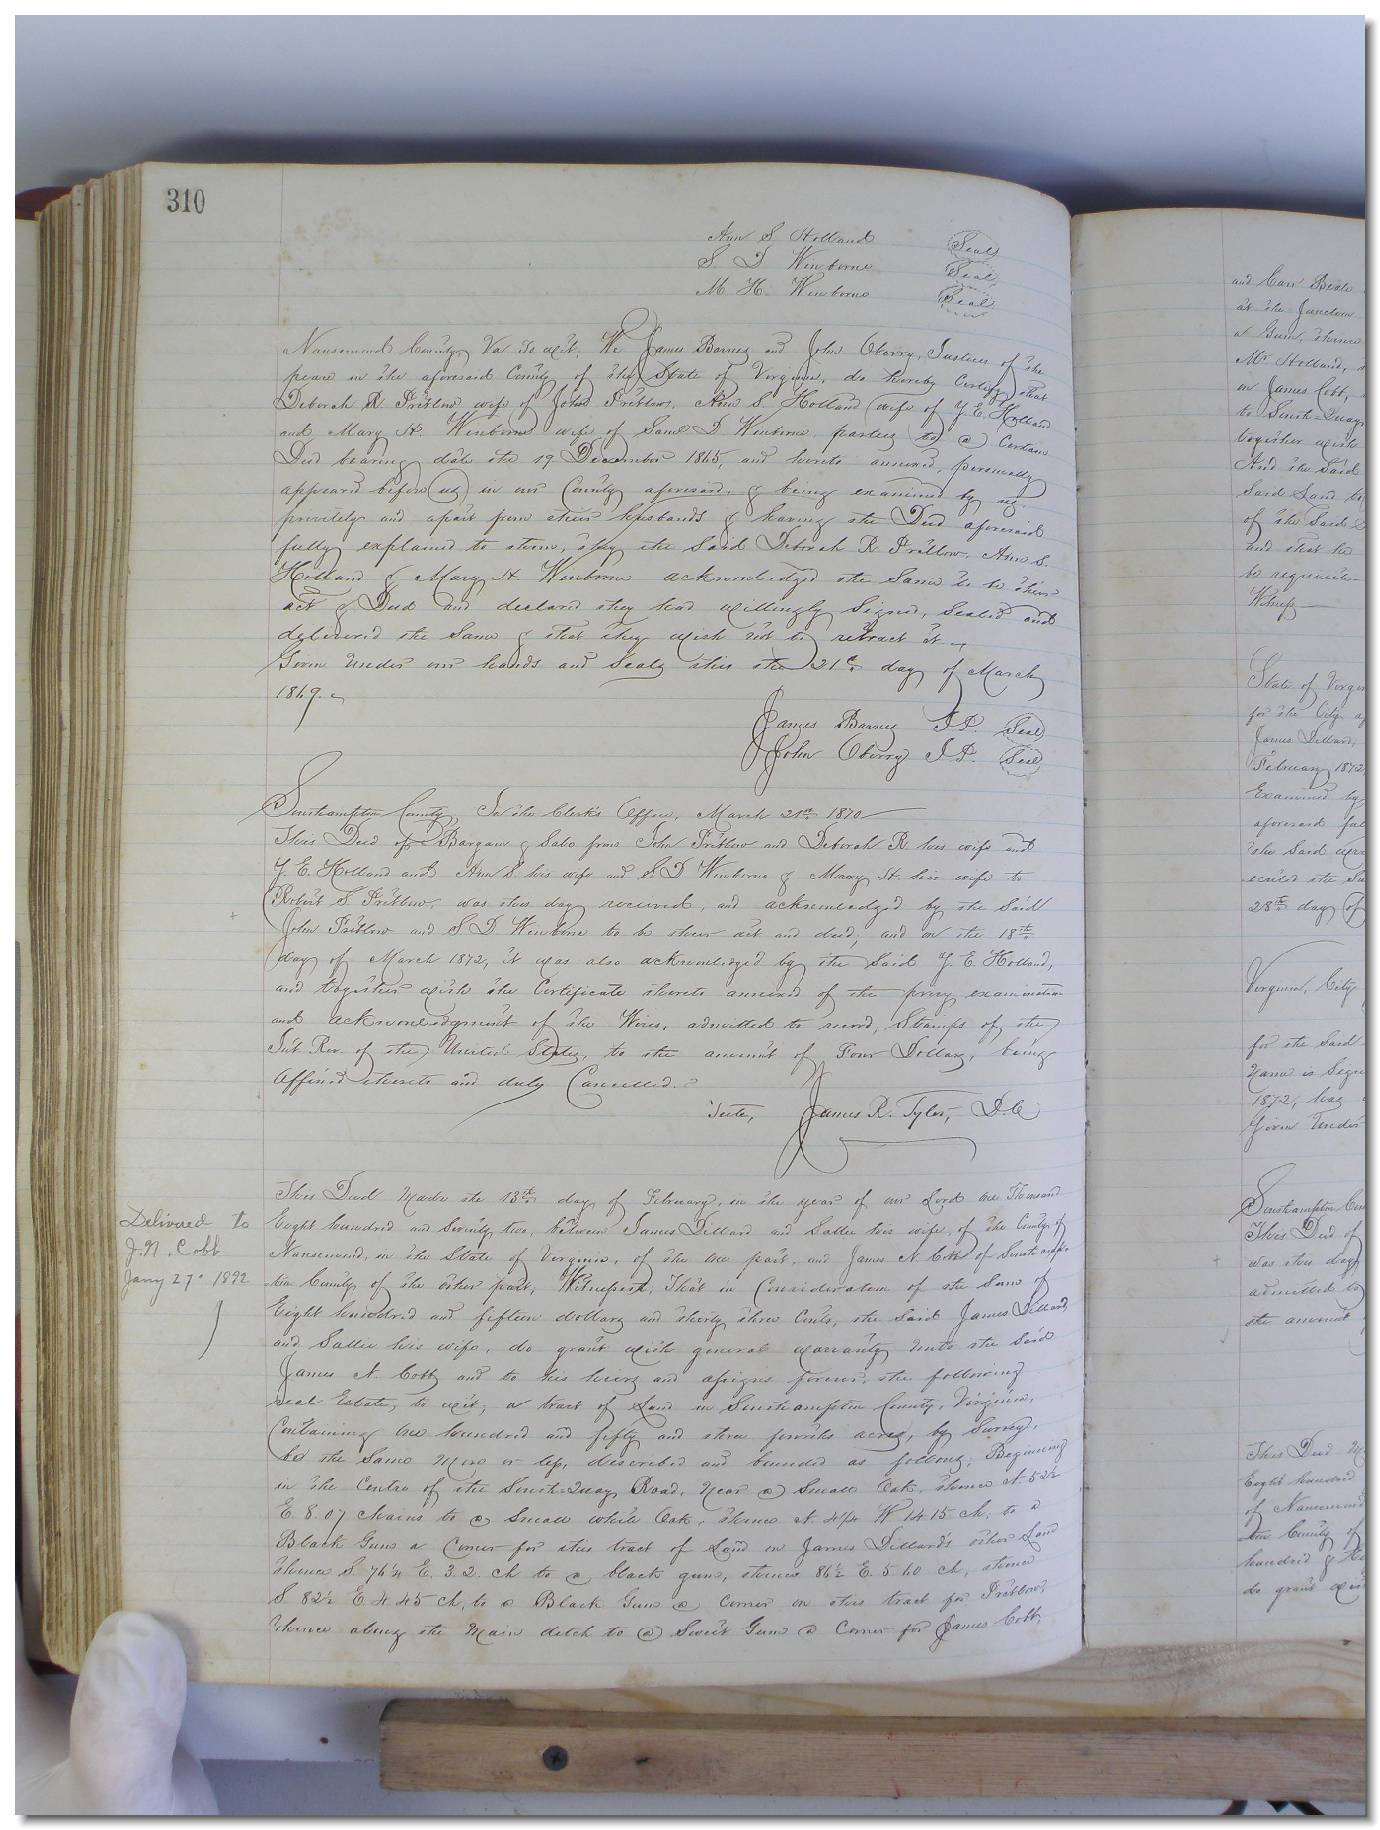 310
Ann S Holland Seal
S D Winborne Seal
M. H. Winborne Seal
Nansemond County, Va To wit, We James Barnes and John Oberry, Justices of the
peace in the aforesaid County of the State of Virginia, do hereby Certify that
Deborah R Pretlow wife of John Pretlow, Ann S. Holland wife of Y. E. Holland
and Mary H. Winborne wife of Saml D Winborne parties to a Certain
Deed bearing date the 19 December 1865, and hereto annexed, personally
appeared before us in our County aforesaid, & being examined by us
privately and apart from their husbands & having the Deed aforesaid
fully explained to them, they the Said Deborah R Pretlow, Ann S.
Holland & Mary H. Winborne acknowledged the Same to be their
act & Deed and declared they had willingly Signed, Sealed and
delivered the Same & that they wish not to retract it
Given Under our hands and Seals this the 21st day of March
1869.
James Barnes J.P. Seal
John Oberry J.P. Seal
Southampton County, In the Clerk's Office, March 21st 1870
This Deed of Bargain & Sale from John Pretlow and Deborah R his wife and
Y. E. Holland and Ann S. his wife and S. D Winborne & Mary H. his wife to
Robert S Pretlow, was this day received, and acknowledged by the Said
John Pretlow and S D Winborne to be their act and deed, and on the 18th
day of March 1872, it was also acknowledged by the Said Y. E. Holland,
and together with the Certificate thereto annexed of the privy examination
and acknowledgment of the Wives, admitted to record, Stamps of the
Int. Rev. of the United States, to the amount of Four Dollars, being
Affixed thereto and duly Cancelled.
Teste, James R. Tyler, D.C
This Deed Made the 13th day of February, in the year of our Lord One Thousand
Eight hundred and Seventy two, between James Dillard and Sallie his wife, of the County of
Nansemond, in the State of Virginia, of the One part, and James N. Cobb of Southamp-
ton County of the other part, Witnesseth, That in Consideration of the Sum of
Eight hundred and fifteen dollars and thirty three Cents, the Said James Dillard
and Sallie his wife, do grant with general warranty Unto the Said
James N. Cobb and to his heirs and assigns forever, the following
real Estate, to wit; a tract of Land in Southampton County, Virginia,
Containing One hundred and fifty and three fourths acres, by Survey,
be the Same More or less, described and bounded as follows; Beginning
in the Centre of the South-Quay Road, Near a Small Oak, thence N 52½
E. 8.07 Chains to a Small white Oak, thence N 4¼ W 14 15 ch. to a
Black Gum a Corner for this tract of Land on James Dillard's other Land
thence S. 76¼ E. 3. 2. ch to a black gum, thence 86½ E. 5. 60 ch, thence
S. 82½ E 4 45 ch, to a Black Gum a Corner on this tract for Pretlow,
thence along the Main ditch to a Sweet Gum a Corner for James Cobb,
Delivered to
J. N. Cobb
Jany 27. 1892
and Carr Beale
at the Junction
a Gum, thence
Mr Holland,
on James Cobb,
to South-Quay
together with
And the Said
Said Land
of the Said
and that he
be requisite
Witness
State of Virgin
for the City
James Dillard,
February 1872
Examined by
aforesaid
the Said
ecuted the
28th day of
Virginia, City
for the Said
Name is Sign
1872, has
Given Under
Southampton
This Deed of
was this day
admitted to
the amount
This Deed M
Eight hundred
of Nansemond
ton County of
hundred &
do grant